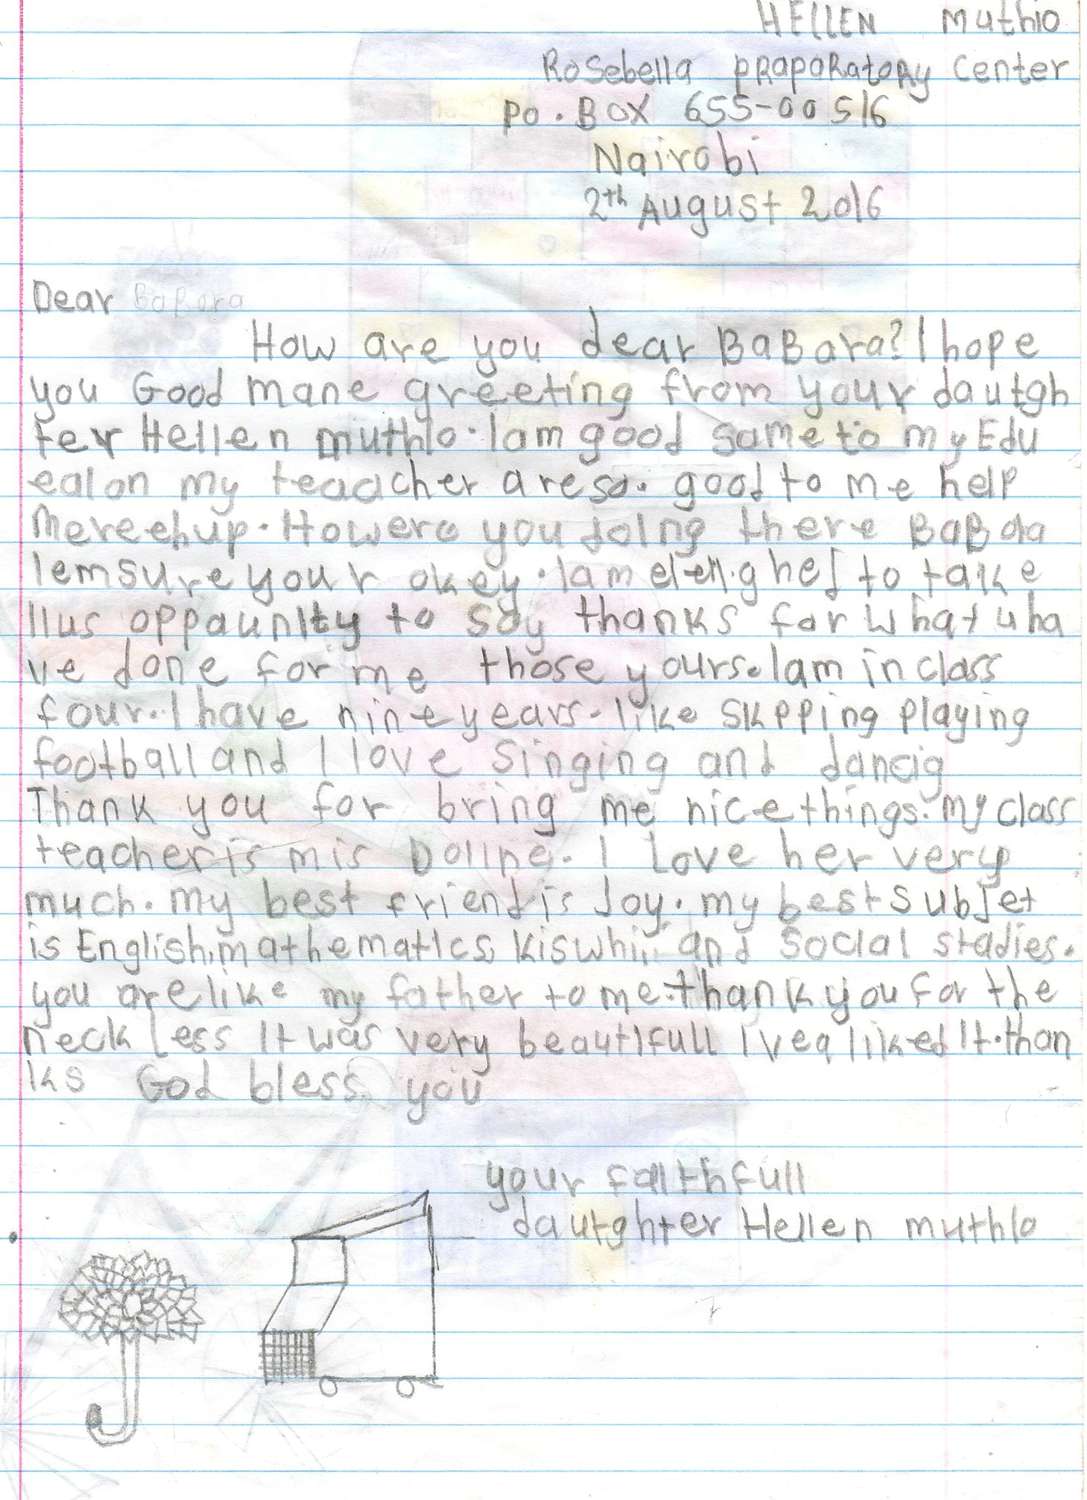 HELLEN muthio
Rosebella pRapaRatoRy center
po. BOX 655-00516
Nairobi
2th August 2016
Dear BaBara
How are you dear BaBara? I hope
you Good mane greeting from your dautgh
ter Hellen muthlo. Iam good same to my Edu
ealon my teaacher are so. good to me help
me up. Howere you doing there BaBda
Iemsure your okey. Iam to take
oppaunity to say thanks for what uha
ve done for me those yours. Iam in class
four. I have nineyears. like skpping playing
football and I love singing and dancig
Thank you for bring me nice things. my class
teacher is mis Dollpe. I Love her very
much. my best friend is Joy. my best subJet
is English, mathematics, kiswhii and social stadies.
you are like my father to me. thank you for the
neck less It was very beautifull Iveq liked It. than
ks God bless you
your falthfull
dautghter Hellen muthlo